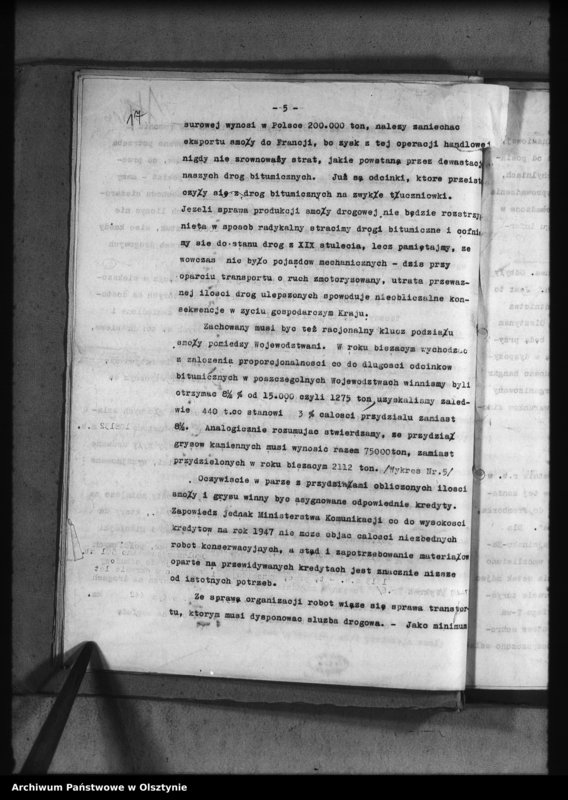 17
- 5 -
surowej wynosi w Polsce 200.000 ton, nalezy zaniechac
eksportu smoły do Francji, bo zysk z tej operacji handlowej
nigdy nie zrownoważy strat, jakie powstaną przez dewastację
naszych drog bitumicznych. Już są odcinki, ktore przeist
czyły się z drog bitumicznych na zwykłe tłuczniowki.
Jezeli sprawa produkcji smoły drogowej nie będzie rozstrzyg
nięta w sposob radykalny stracimy drogi bituniczne i cofnie
my sie do stanu drog z XIX stulecia, lecz pamiętajmy, ze
wowczas nie było pojazdow mechanicznych - dzis przy
oparciu transportu o ruch zmotoryzowany, utrata przewaz-
nej ilosci drog ulepszonych spowoduje nieobliczalne kon-
sekwencje w zyciu gospodarczym Kraju.
Zachowany musi byc też racjonalny klucz podziału
smoły pomiedzy Wojewodztwami. W roku biezacym wychodzac
z zalozenia proporcjonalnosci co do długosci odcinkow
bitumicznych w poszczegolnych Wojewodztwach winnismy byli
otrzymac 8½ % od 15.000 czyli 1275 ton, uzyskalismy zaled-
wie 440 t.co stanowi 3 % calosci przydzialu zamiast
8½. Analogicznie rozumujac stwierdzamy, ze przydział
grysow kamiennych musi wynosic razem 75000ton, zamiast
przydzielonych w roku biezacym 2112 ton. /Wykres Nr.5/
Oczywiscie w parze z przydziałami obliczonych ilosci
smoły i grysu winny byc asygnowane odpowiednie kredyty.
Zapowiedz jednak Ministerstwa Komunikacji co do wysokosci
kredytow na rok 1947 nie może objac calosci niezbędnych
robot konserwacyjnych, a stąd i zapotrzebowanie materiałow
oparte na przewidywanych kredytach jest znacznie nizsze
od istotnych potrzeb.
Ze sprawą organizacji robot wiąze się sprawa transpor-
tu, ktorym musi dysponowac sluzba drogowa. - Jako minimum
Archiwum Państwowe w Olsztynie